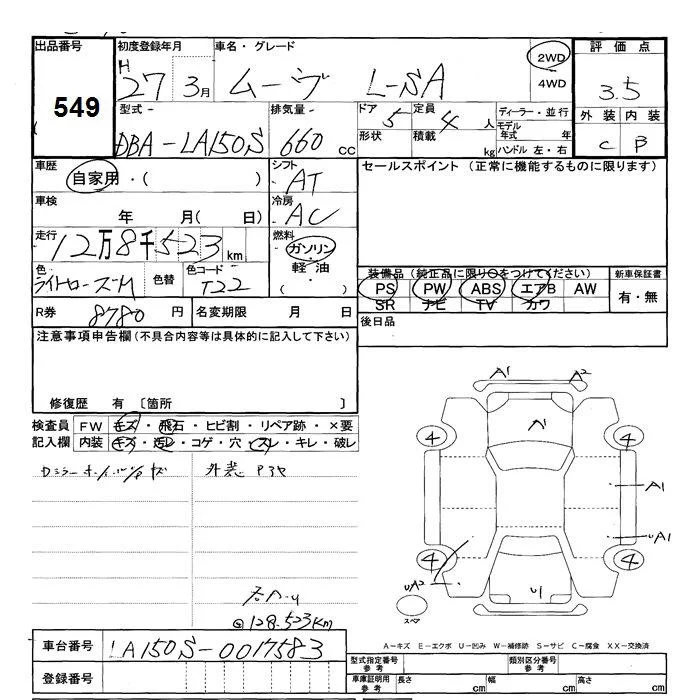 出品番号
549
初度登録年月
H 27 3月
車名・グレード
ムーヴ L-SA
2WD
4WD
評価点
3.5
外装 内装
C B
型式
DBA-LA150S
排気量
660 cc
ドア 5
形状
定員 4 人
積載 kg
ディーラー・並行
モデル年式 年
ハンドル 左・右
車歴
自家用・( )
シフト
AT
セールスポイント (正常に機能するものに限ります)
車検
年 月( 日)
冷房
AC
走行
12万8千523km
燃料
ガソリン
軽油
( )
色
ライトローズM
色替
色コード
T22
装備品 (純正品に限り○をつけてください)
PS PW ABS エアB AW
SR ナビ TV カワ
新車保証書
有・無
R券 8780 円
名変期限 月 日
後日品
注意事項申告欄 (不具合内容等は具体的に記入して下さい)
修復歴 有 〔箇所 〕
検査員記入欄
FW キズ・飛石・ヒビ割・リペア跡・×要
内装 キズ・汚レ・コゲ・穴・スレ・キレ・破レ
外装
@128.523km
A1 A2
4 4
A1
UA1
4 4
UA2
U
スペア
A-キズ E-エクボ U-凹み W-補修跡 S-サビ C-腐食 XX-交換済
車台番号 LA150S-0017583
登録番号
型式指定番号 参考
類別区分番号 参考
車庫証明用 参考
長さ cm 幅 cm 高さ cm